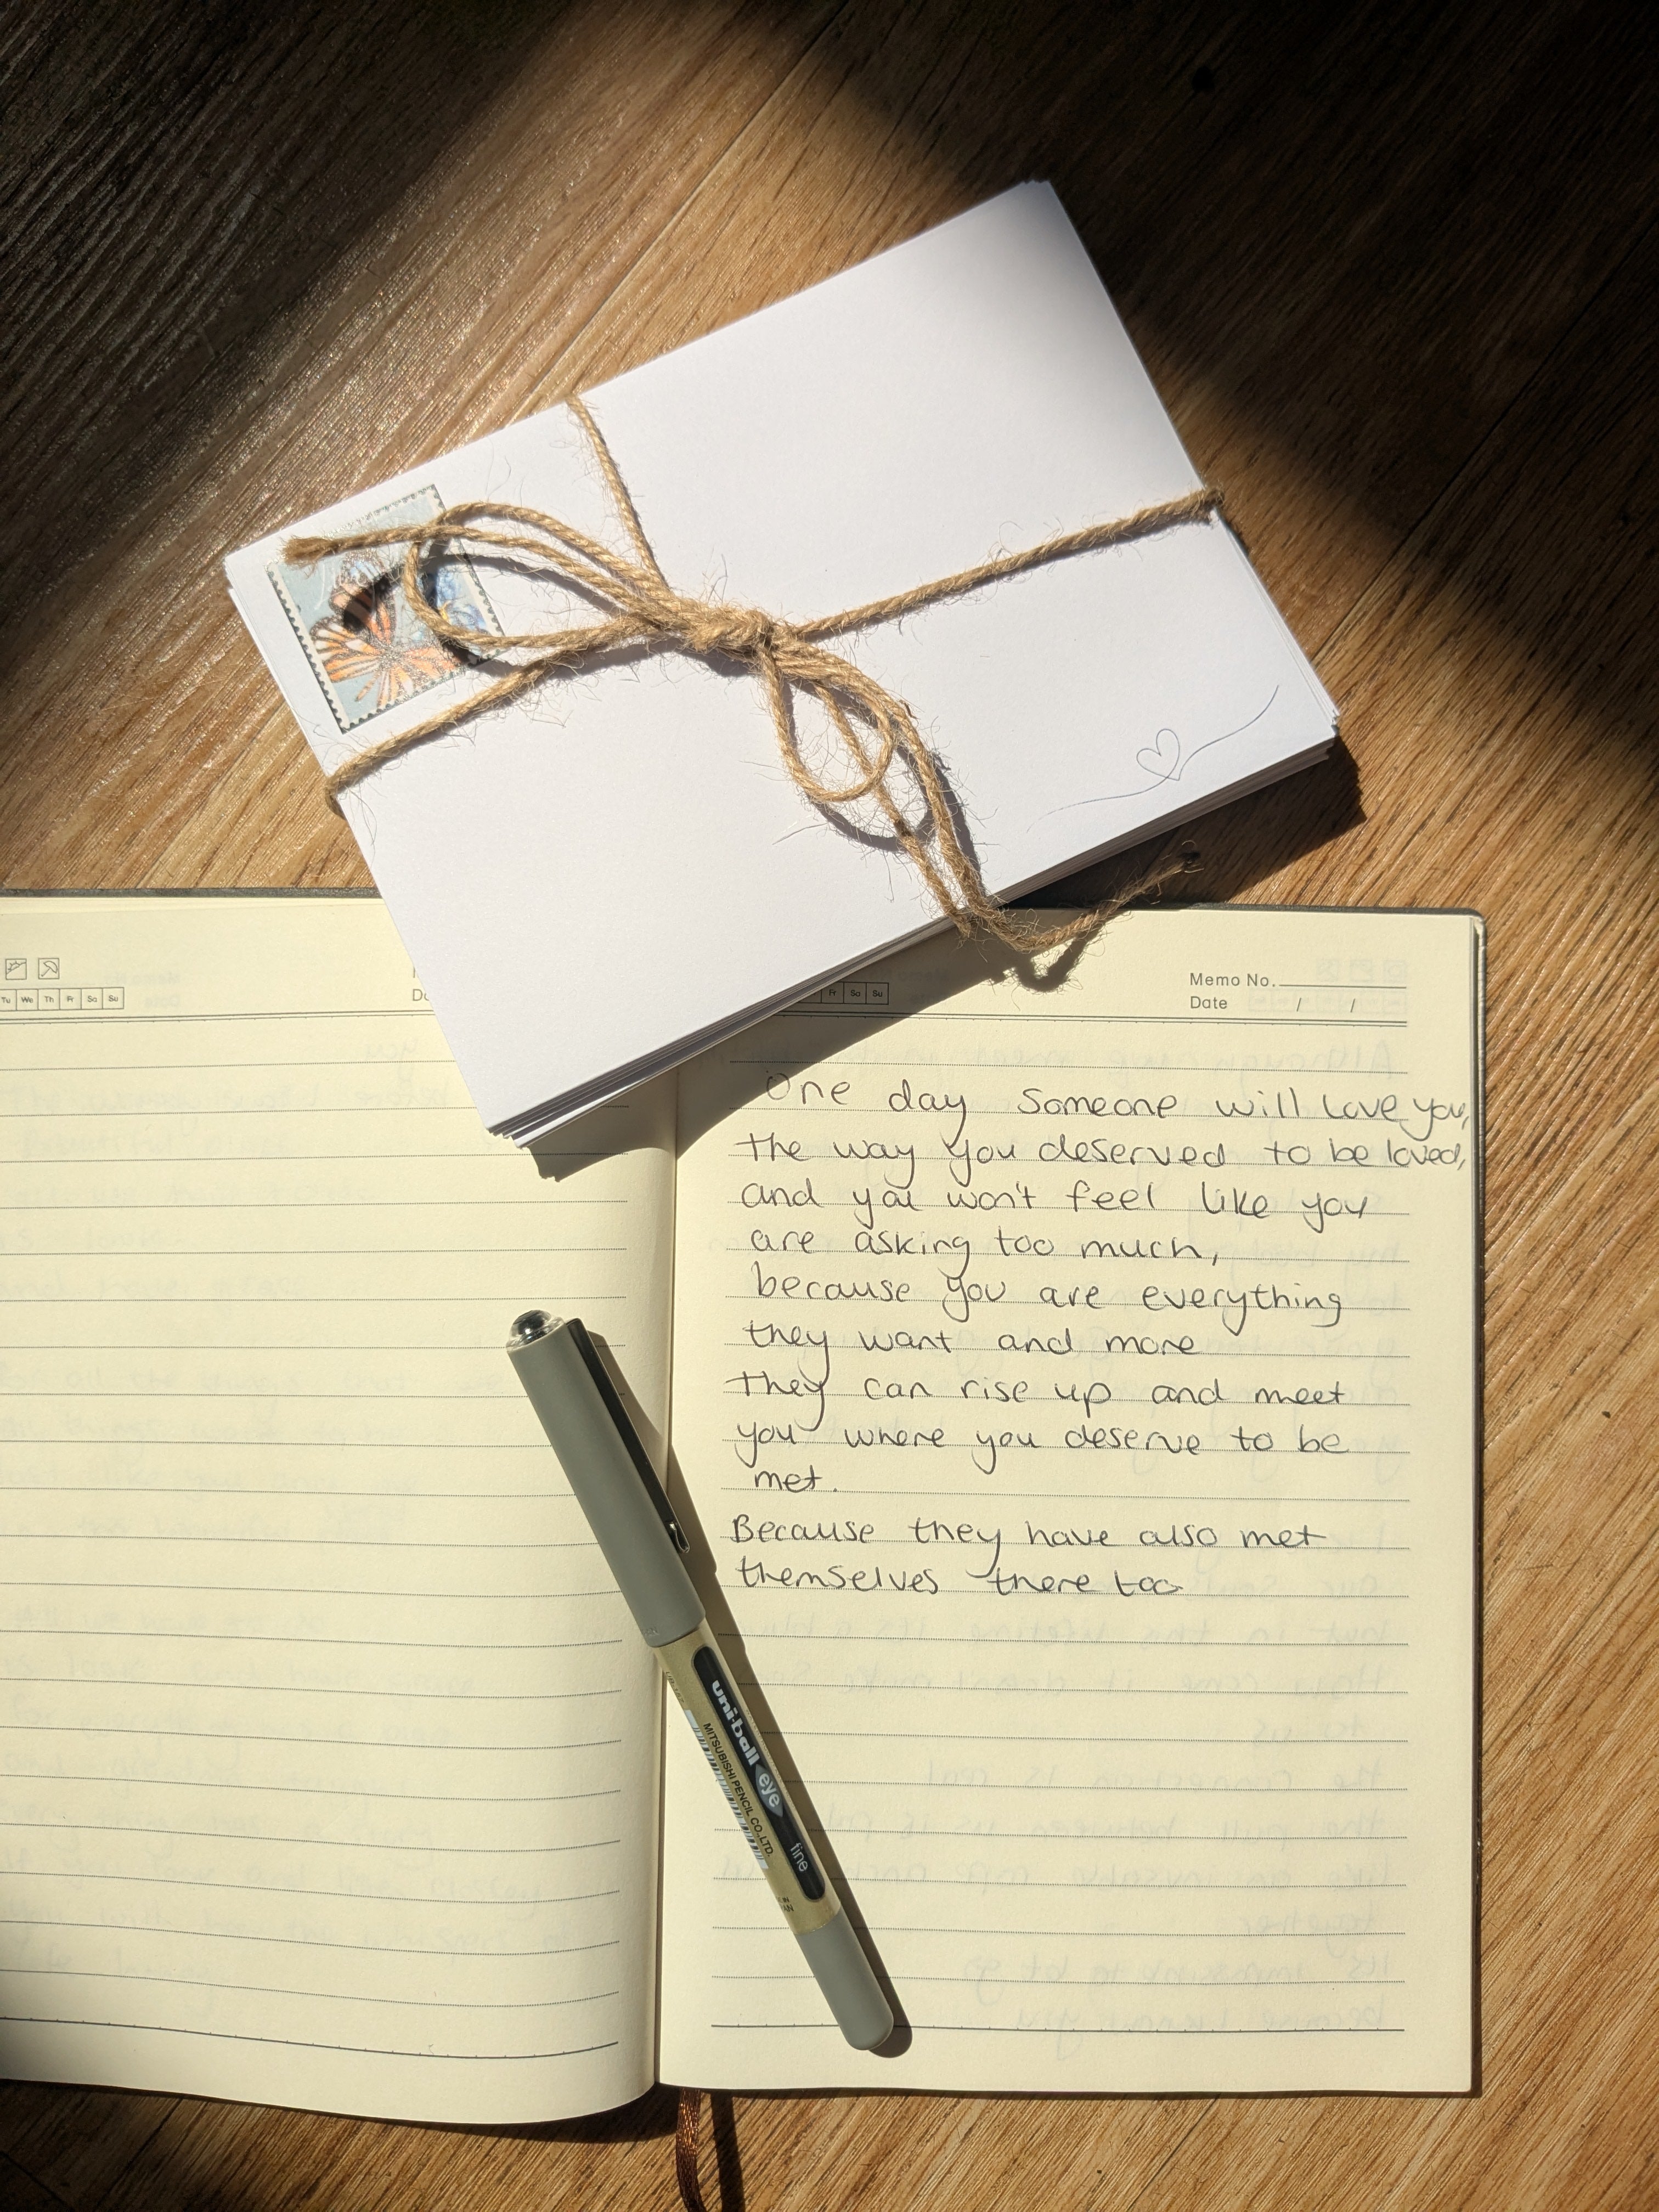 Tu We Th Fr Sa Su
Fr Sa Su
Memo No.
Date / /
One day Someone will love you,
the way you deserved to be loved,
and you won't feel like you
are asking too much,
because you are everything
they want and more
They can rise up and meet
you where you deserve to be
met.
Because they have also met
themselves there too
uni-ball eye fine
MITSUBISHI PENCIL CO., LTD.